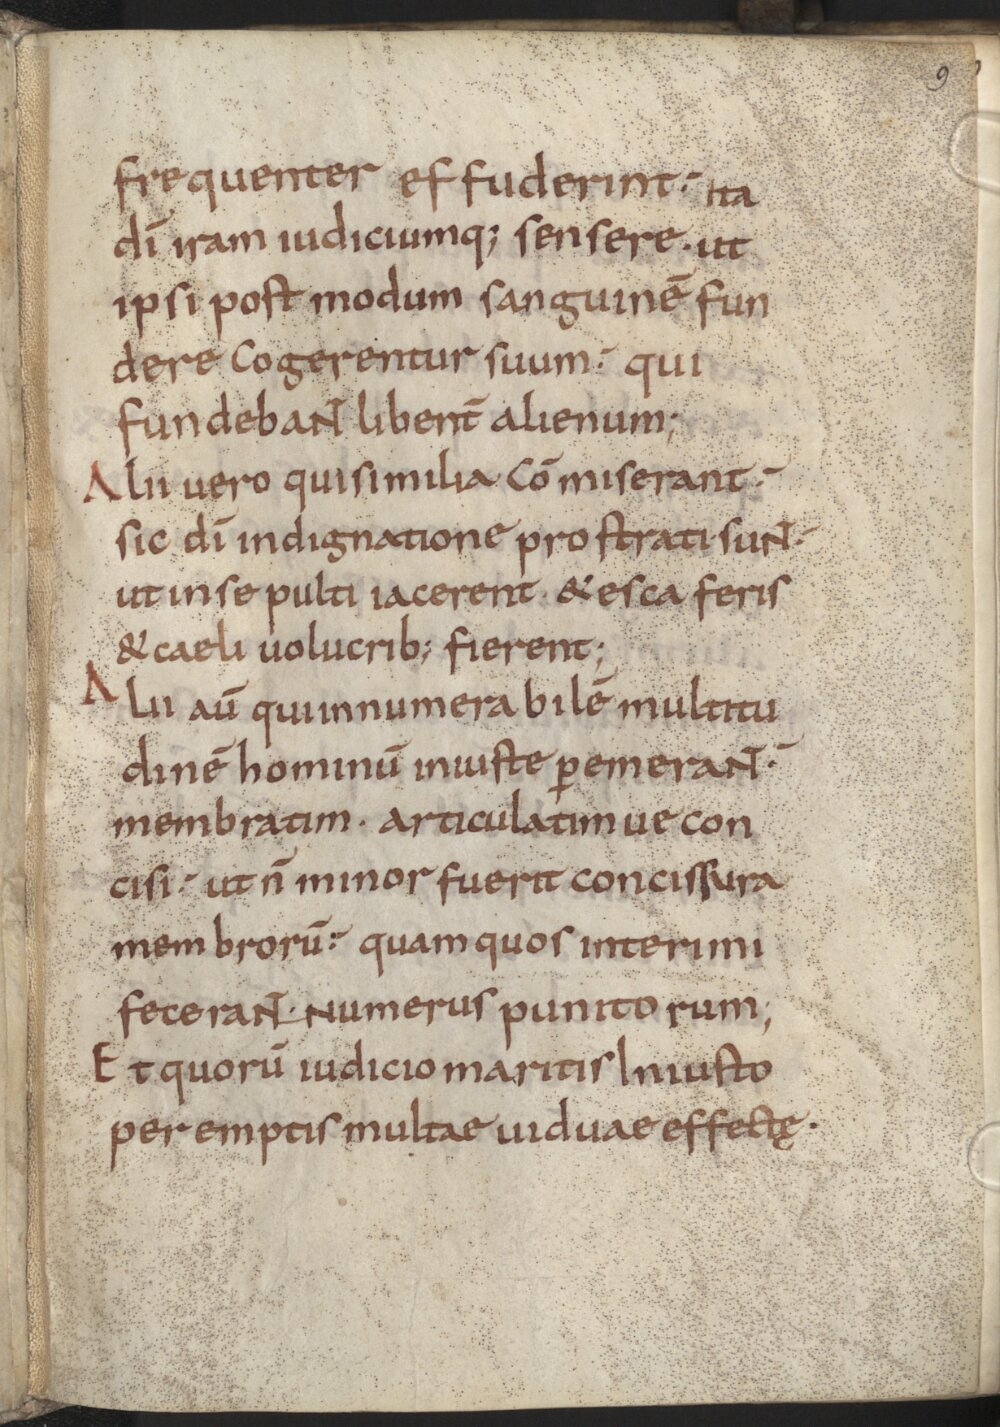 9
frequenter effuderint· ita
dī iram iudiciumq; sensere· ut
ipsi post modum sanguinē fun
dere cogerentur suum· qui
fundebant libent̄ alienum;
Alii vero qui similia cō miserant·
sic dī indignatione prostrati sunt·
ut insepulti iacerent· & esca feris
& caeli uolucrib; fierent;
Alii aū qui innumerabilē multitu
dinē hominū iniuste ꝑemerant·
membratim· articulatim ue con
cisi· ut n̄ minor fuerit concissura
membrorū· quam quos interimi
fecerant· numerus punitorum;
Et quorū iudicio maritis Iniusto
peremptis multae uiduae effectę·